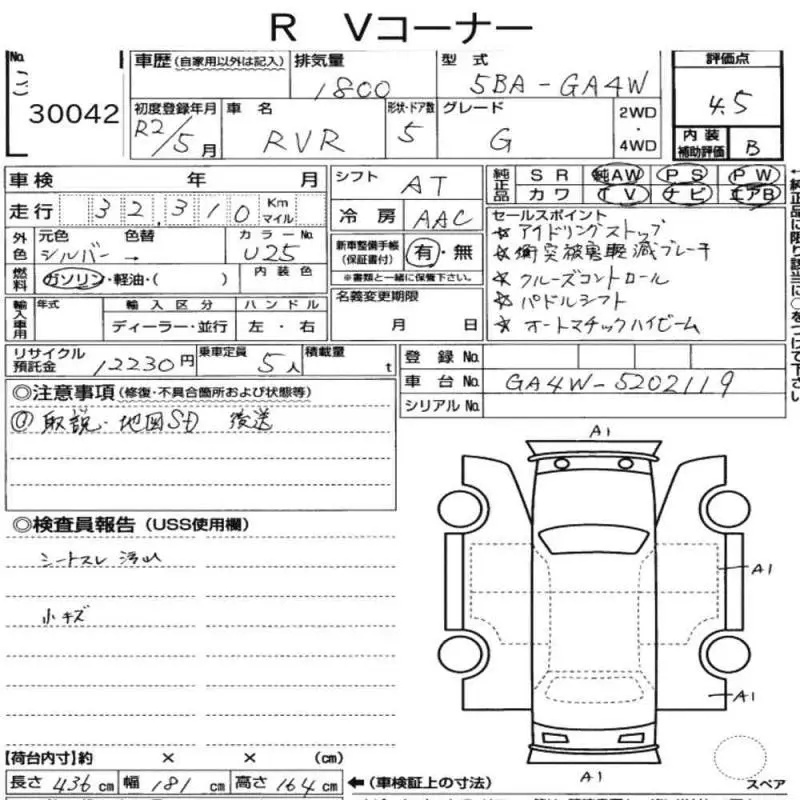 R Vコーナー
No.
30042
車歴 (自家用以外は記入)
排気量
1800
型式
5BA-GA4W
評価点
4.5
初度登録年月
R2/5月
車名
RVR
形状・ドア数
5
グレード
G
2WD
・
4WD
内装
補助評価
B
車検 年 月
シフト
AT
純正品
SR 純AW PS PW
カワ TV ナビ エアB
走行 32,310 Km マイル
冷房 AAC
セールスポイント
☆ アイドリングストップ
☆ 衝突被害軽減ブレーキ
☆ クルーズコントロール
☆ パドルシフト
☆ オートマチックハイビーム
外色
元色 色替
シルバー →
カラーNo.
U25
新車整備手帳
(保証書付)
有・無
※書類と一緒に保管下さい。
燃料
ガソリン・軽油・( )
内装色
名義変更期限
月 日
輸入車用
年式
輸入区分
ディーラー・並行
ハンドル
左・右
リサイクル
預託金
12230円
乗車定員 5人
積載量 t
登録No.
車台No. GA4W-5202119
シリアルNo.
◎注意事項 (修復・不具合箇所および状態等)
取説・地図SD 後送
◎検査員報告 (USS使用欄)
シートスレ 汚レ
小キズ
A1
A1
A1
A1
スペア
【荷台内寸】約 × × (cm)
長さ 436 cm 幅 181 cm 高さ 164 cm
←(車検証上の寸法)